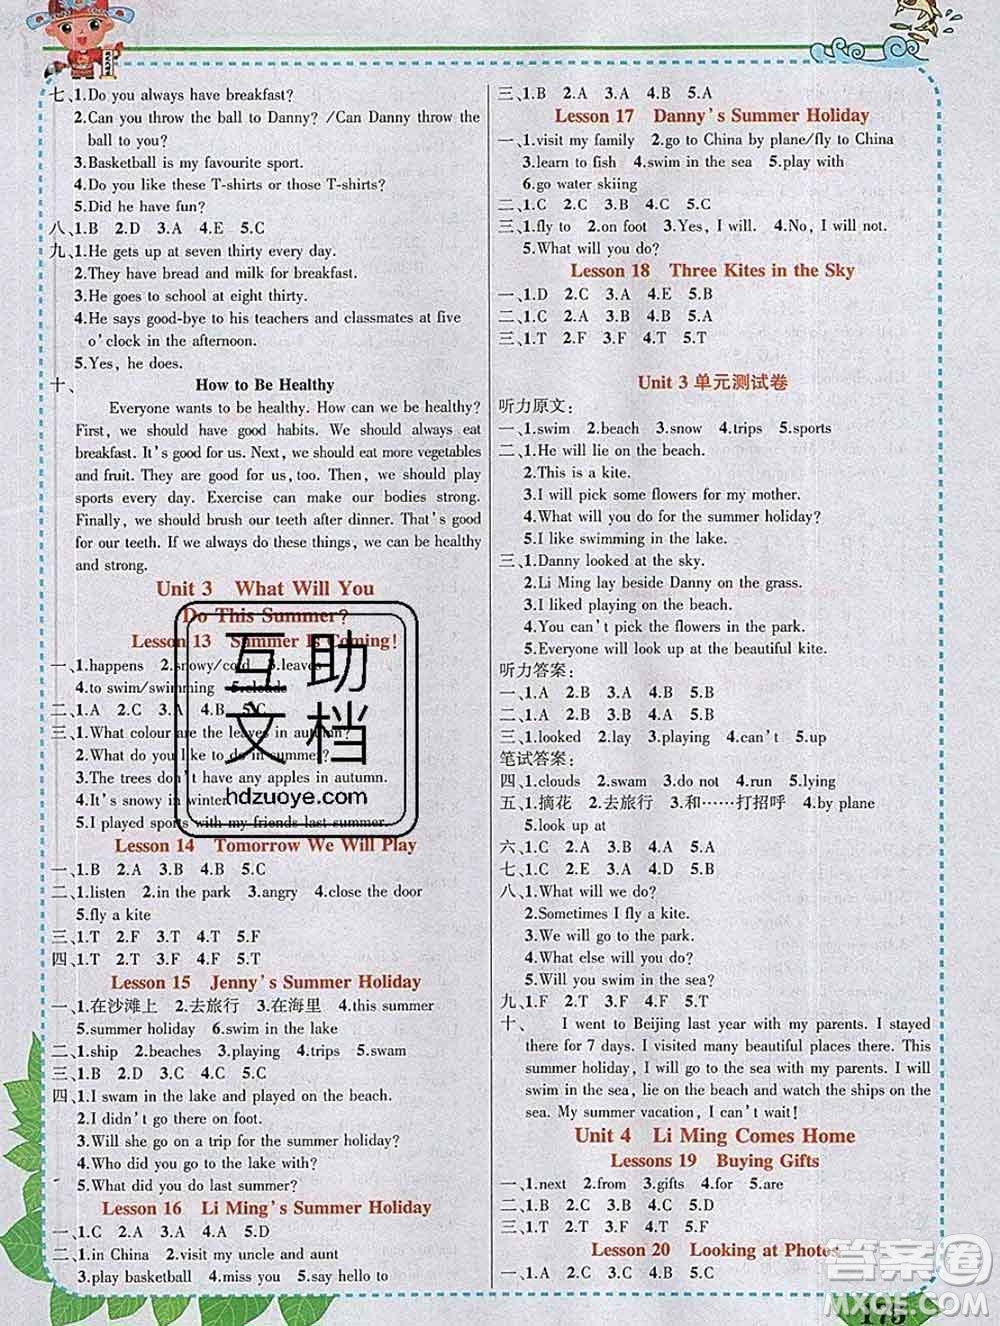 七、1.Do you always have breakfast?
2.Can you throw the ball to Danny? /Can Danny throw the
ball to you?
3.Basketball is my favourite sport.
4.Do you like these T-shirts or those T-shirts?
5.Did he have fun?
八、1.B 2.D 3.A 4.E 5.C
九、1.He gets up at seven thirty every day.
2.They have bread and milk for breakfast.
3.He goes to school at eight thirty.
4.He says good-bye to his teachers and classmates at five
o'clock in the afternoon.
5.Yes, he does.
十、 How to Be Healthy
Everyone wants to be healthy. How can we be healthy?
First, we should have good habits. We should always eat
breakfast. It's good for us. Next, we should eat more vegetables
and fruit. They are good for us, too. Then, we should play
sports every day. Exercise can make our bodies strong.
Finally, we should brush our teeth after dinner. That's good
for our teeth. If we always do these things, we can be healthy
and strong.
Unit 3 What Will You
Do This Summer?
Lesson 13 Summer Is Coming!
一、1.happens 2.snowy/cold 3.leaves
4.to swim/swimming 5.clouds
二、1.A 2.C 3.A 4.B 5.C
三、1.What colour are the leaves in autumn?
2.What do you like to do in summer?
3.The trees don't have any apples in autumn.
4.It's snowy in winter.
5.I played sports with my friends last summer.
Lesson 14 Tomorrow We Will Play
一、1.B 2.A 3.B 4.B 5.C
二、1.listen 2.in the park 3.angry 4.close the door
5.fly a kite
三、1.T 2.F 3.T 4.T 5.F
四、1.T 2.T 3.F 4.F 5.F
Lesson 15 Jenny's Summer Holiday
一、1.在沙滩上 2.去旅行 3.在海里 4.this summer
5.summer holiday 6.swim in the lake
二、1.ship 2.beaches 3.playing 4.trips 5.swam
三、1.B 2.C 3.B 4.C 5.B
四、1.I swam in the lake and played on the beach.
2.I didn't go there on foot.
3.Will she go on a trip for the summer holiday?
4.Who did you go to the lake with?
5.What did you do last summer?
Lesson 16 Li Ming's Summer Holiday
一、1.C 2.A 3.A 4.A 5.D
二、1.in China 2.visit my uncle and aunt
3.play basketball 4.miss you 5.say hello to
三、1.B 2.A 3.A 4.B 5.A
Lesson 17 Danny's Summer Holiday
一、1.visit my family 2.go to China by plane/fly to China
3.learn to fish 4.swim in the sea 5.play with
6.go water skiing
二、1.C 2.C 3.B 4.C 5.C
三、1.fly to 2.on foot 3.Yes, I will. 4.No, I will not.
5.What will you do?
Lesson 18 Three Kites in the Sky
一、1.D 2.C 3.A 4.E 5.B
二、1.C 2.A 3.A 4.B 5.A
三、1.T 2.F 3.F 4.T 5.T
Unit 3 单元测试卷
听力原文:
一、1.swim 2.beach 3.snow 4.trips 5.sports
二、1.He will lie on the beach.
2.This is a kite.
3.I will pick some flowers for my mother.
4.What will you do for the summer holiday?
5.I like swimming in the lake.
三、1.Danny looked at the sky.
2.Li Ming lay beside Danny on the grass.
3.I liked playing on the beach.
4.You can't pick the flowers in the park.
5.Everyone will look up at the beautiful kite.
听力答案:
一、1.A 2.B 3.A 4.B 5.A
二、1.B 2.A 3.A 4.B 5.B
三、1.looked 2.lay 3.playing 4.can't 5.up
笔试答案:
四、1.clouds 2.swam 3.do not 4.run 5.lying
五、1.摘花 2.去旅行 3.和……打招呼 4.by plane
5.look up at
六、1.C 2.A 3.B 4.A 5.A
七、1.C 2.E 3.A 4.D 5.B
八、1.What will we do?
2.Sometimes I fly a kite.
3.We will go to the park.
4.What else will you do?
5.Will you swim in the sea?
九、1.F 2.T 3.F 4.T 5.T
十、 I went to Beijing last year with my parents. I stayed
there for 7 days. I visited many beautiful places there. This
summer holiday, I will go to the sea with my parents. I will
swim in the sea, lie on the beach and watch the ships on the
sea. My summer vacation, I can't wait!
Unit 4 Li Ming Comes Home
Lessons 19 Buying Gifts
一、1.next 2.from 3.gifts 4.for 5.are
二、1.C 2.C 3.C 4.B 5.B
三、1.T 2.T 3.F 4.T 5.F
Lesson 20 Looking at Photos
一、1.A 2.C 3.C 4.B 5.A
175
互助文档
hdzuoye.com
答案圈
MXQE.COM